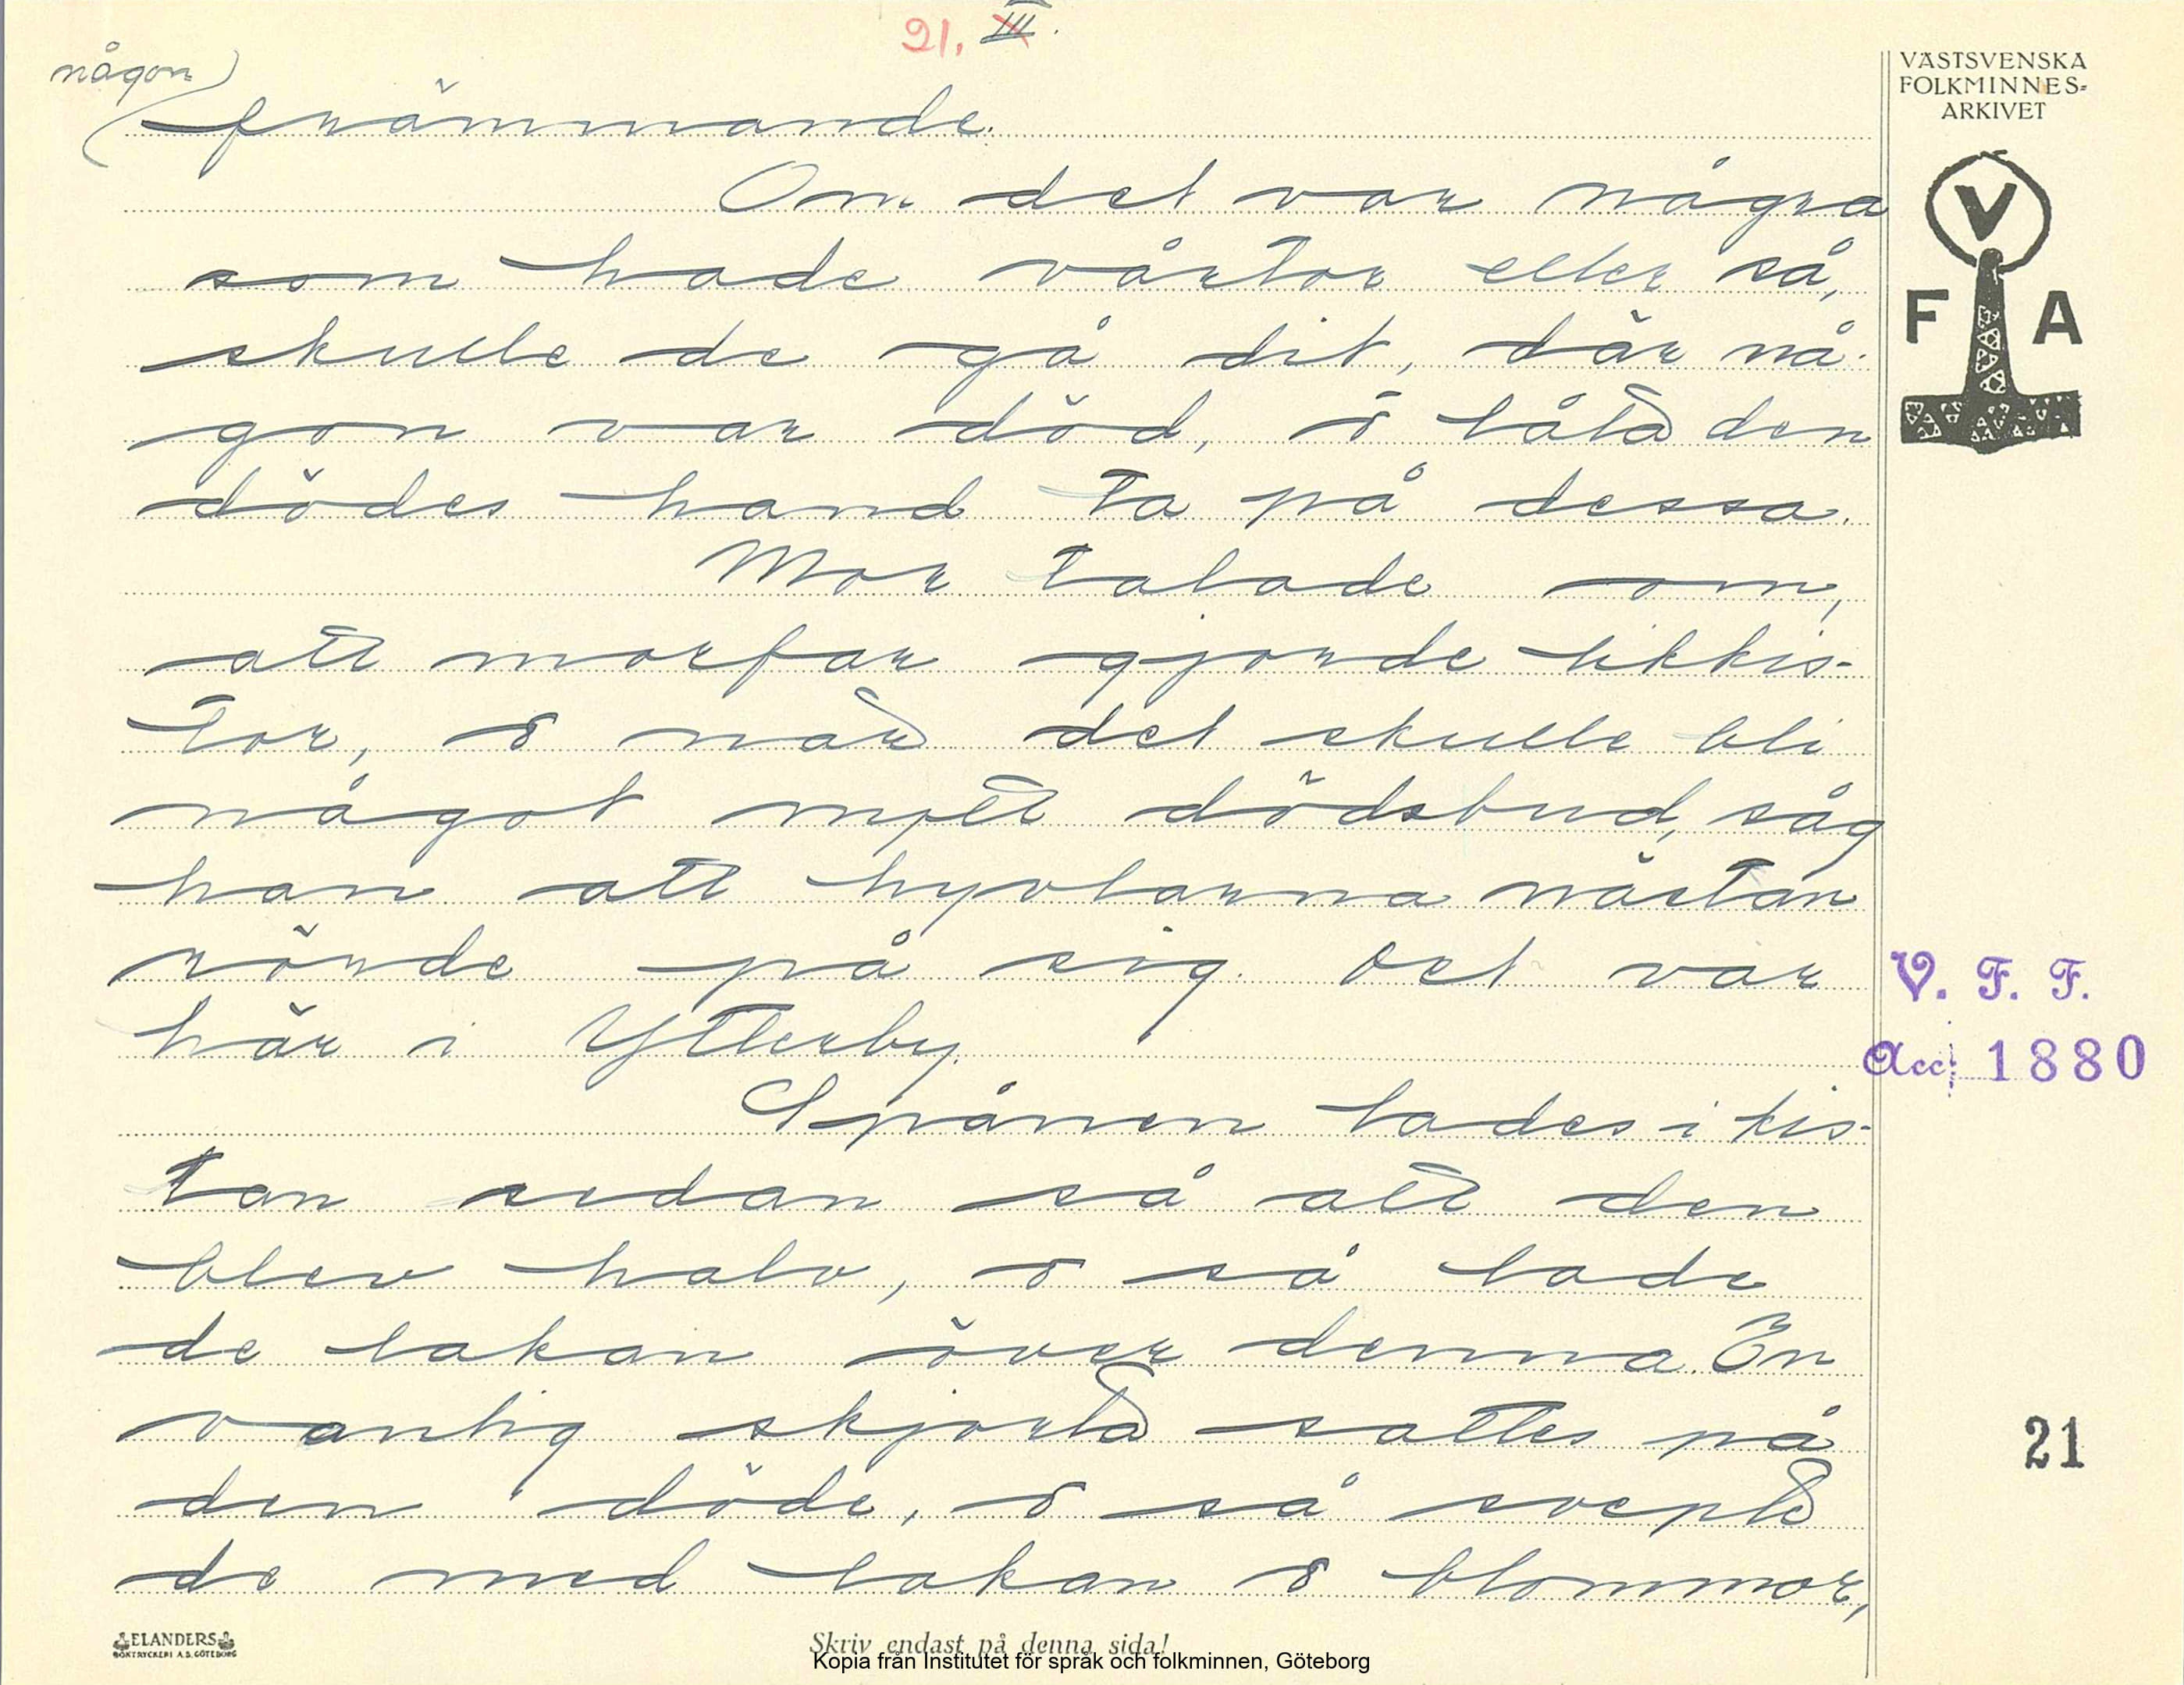 21. III.
någon
främmande.
Om det var några
som hade vårtor eller så,
skulle de gå dit, där nå-
gon var död, ö låta den
dödes hand ta på dessa.
Mor talade om,
att morfar gjorde likkis-
tor, ö när det skulle bli
något nytt dödsbud, såg
han att hyvlarna nästan
rörde på sig. Det var
här i Ytterby.
Spånen lades i kis-
tan sedan så att den
blev halv, ö så lade
de lakan över denna. En
vanlig skjorta sattes på
den döde, ö så svepte
de med lakan ö blommor,
VÄSTSVENSKA
FOLKMINNES-
ARKIVET
V
F A
V. F. F.
Acc: 1880
21
ELANDERS
BOKTRYCKERI A.B. GÖTEBORG
Skriv endast på denna sida!
Kopia från Institutet för språk och folkminnen, Göteborg